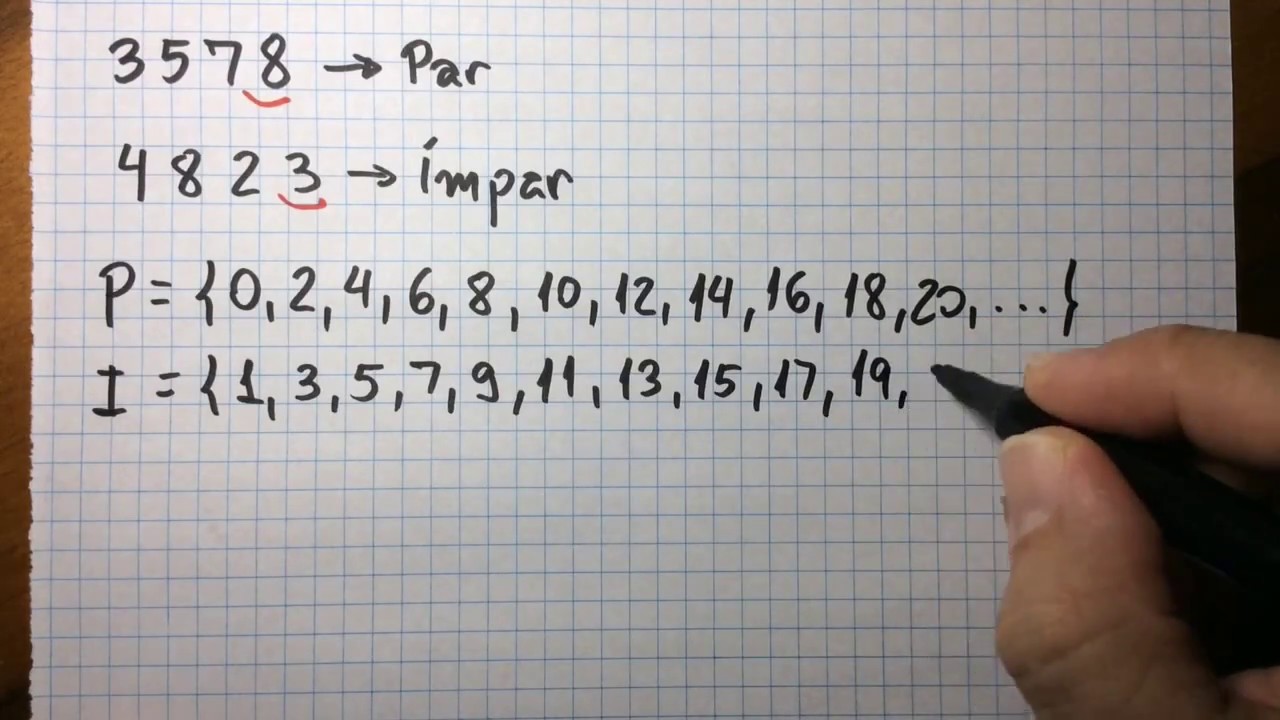 3578 → Par
4823 → ímpar
P = {0, 2, 4, 6, 8, 10, 12, 14, 16, 18, 20, ...}
I = {1, 3, 5, 7, 9, 11, 13, 15, 17, 19,